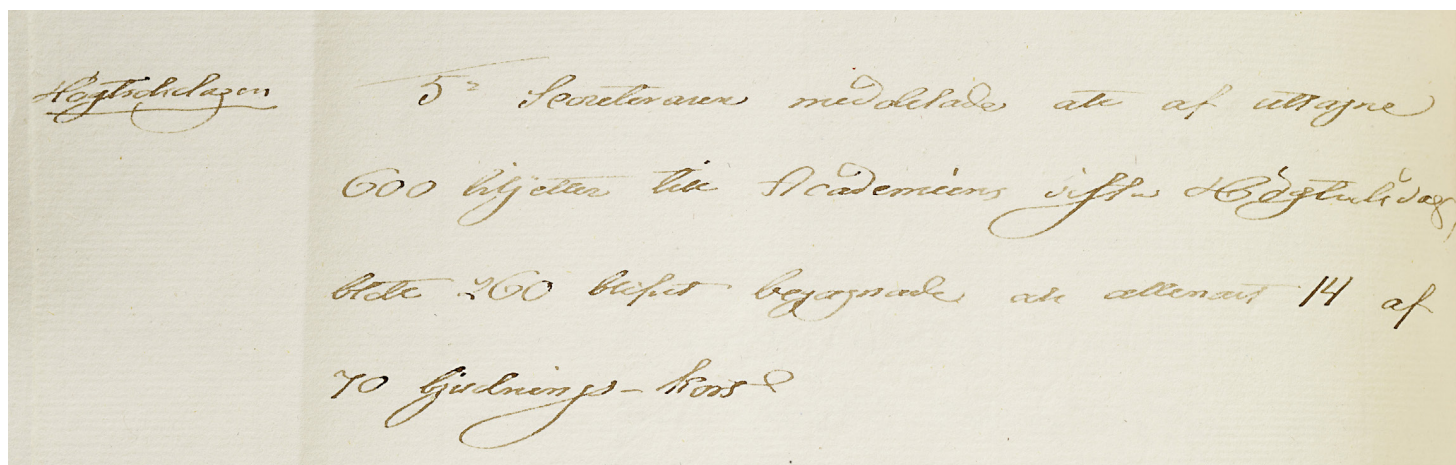 Högtidsdagen
5º Secreteraren meddelade att af uttagne
600 biljetter till Academiens sista Högtidsdag,
blott 260 blifvit begagnade och allenast 14 af
70 bjudnings-kort